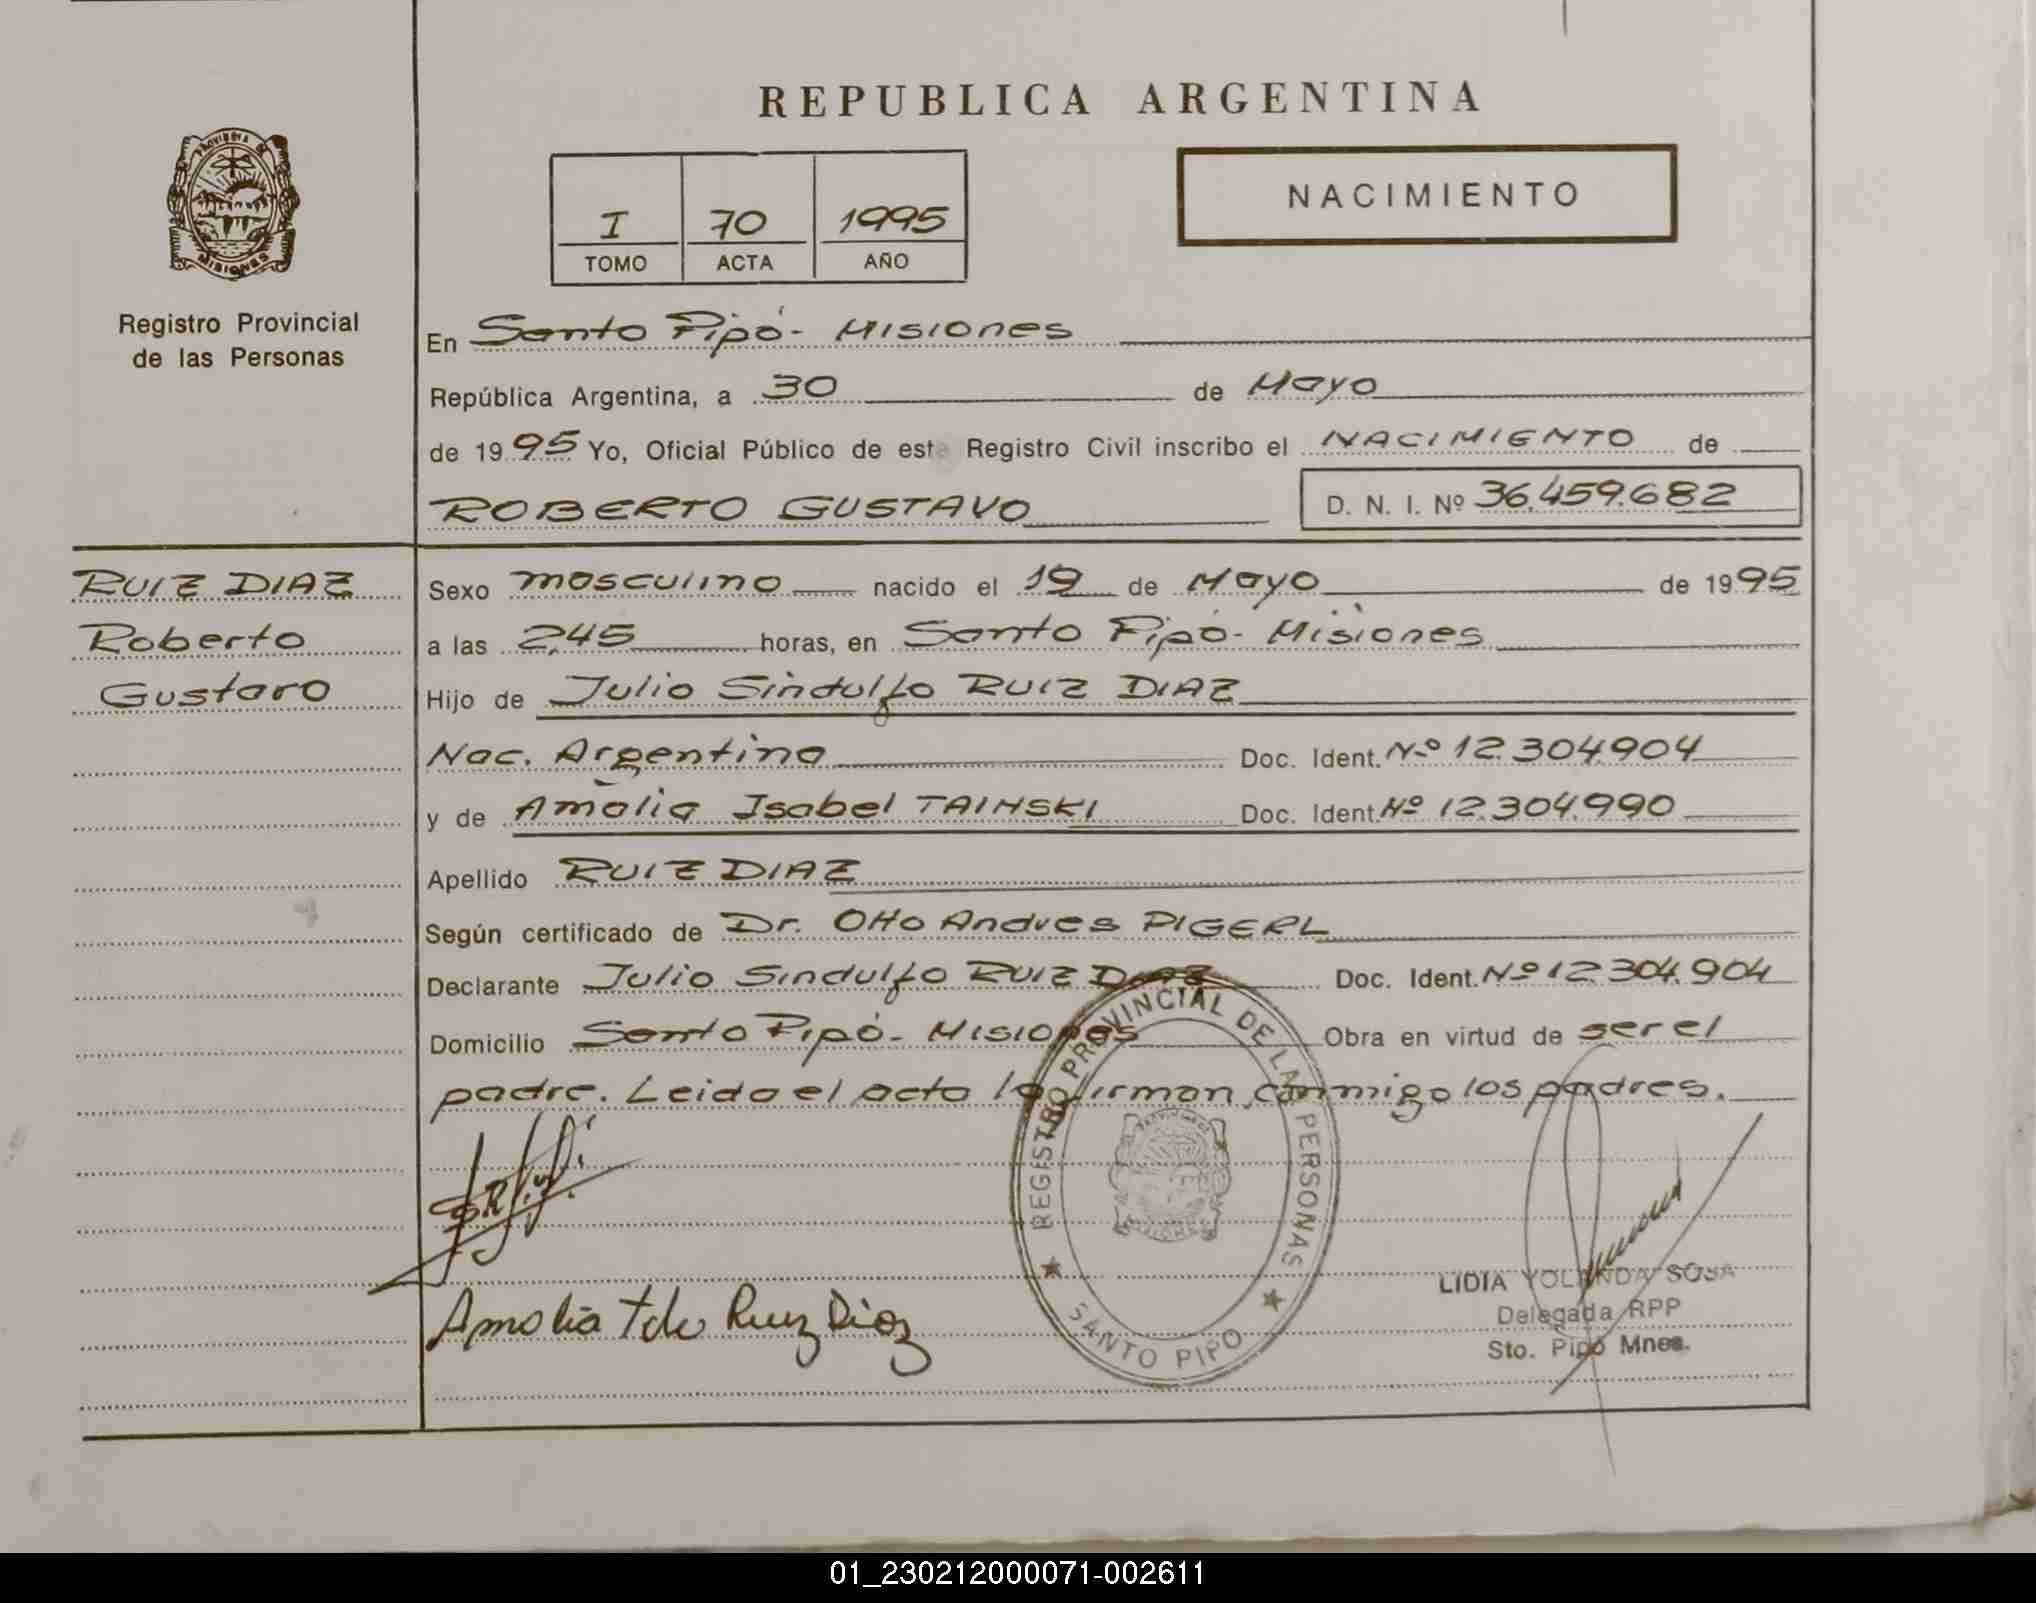 REPUBLICA ARGENTINA
PROVINCIA DE MISIONES
Registro Provincial
de las Personas
I 70 1995
TOMO ACTA AÑO
NACIMIENTO
En Santo Pipó - Misiones
República Argentina, a 30 de Mayo
de 1995 Yo, Oficial Público de este Registro Civil inscribo el NACIMIENTO de
ROBERTO GUSTAVO D. N. I. Nº 36.459.682
RUIZ DIAZ
Roberto
Gustavo
Sexo masculino nacido el 19 de Mayo de 1995
a las 2,45 horas, en Santo Pipó - Misiones
Hijo de Julio Sindulfo RUIZ DIAZ
Nac. Argentina Doc. Ident. Nº 12.304.904
y de Amalia Isabel TAINSKI Doc. Ident. Nº 12.304.990
Apellido RUIZ DIAZ
Según certificado de Dr. Otto Andres PIGERL
Declarante Julio Sindulfo RUIZ DIAZ Doc. Ident. Nº 12.304.904
Domicilio Santo Pipó - Misiones Obra en virtud de ser el
padre. Leida el acta la firman conmigo los padres.
REGISTRO PROVINCIAL DE LAS PERSONAS
SANTO PIPO
Amalia T de Ruiz Diaz
LIDIA YOLANDA SOSA
Delegada RPP
Sto. Pipó Mnes.
01_230212000071-002611